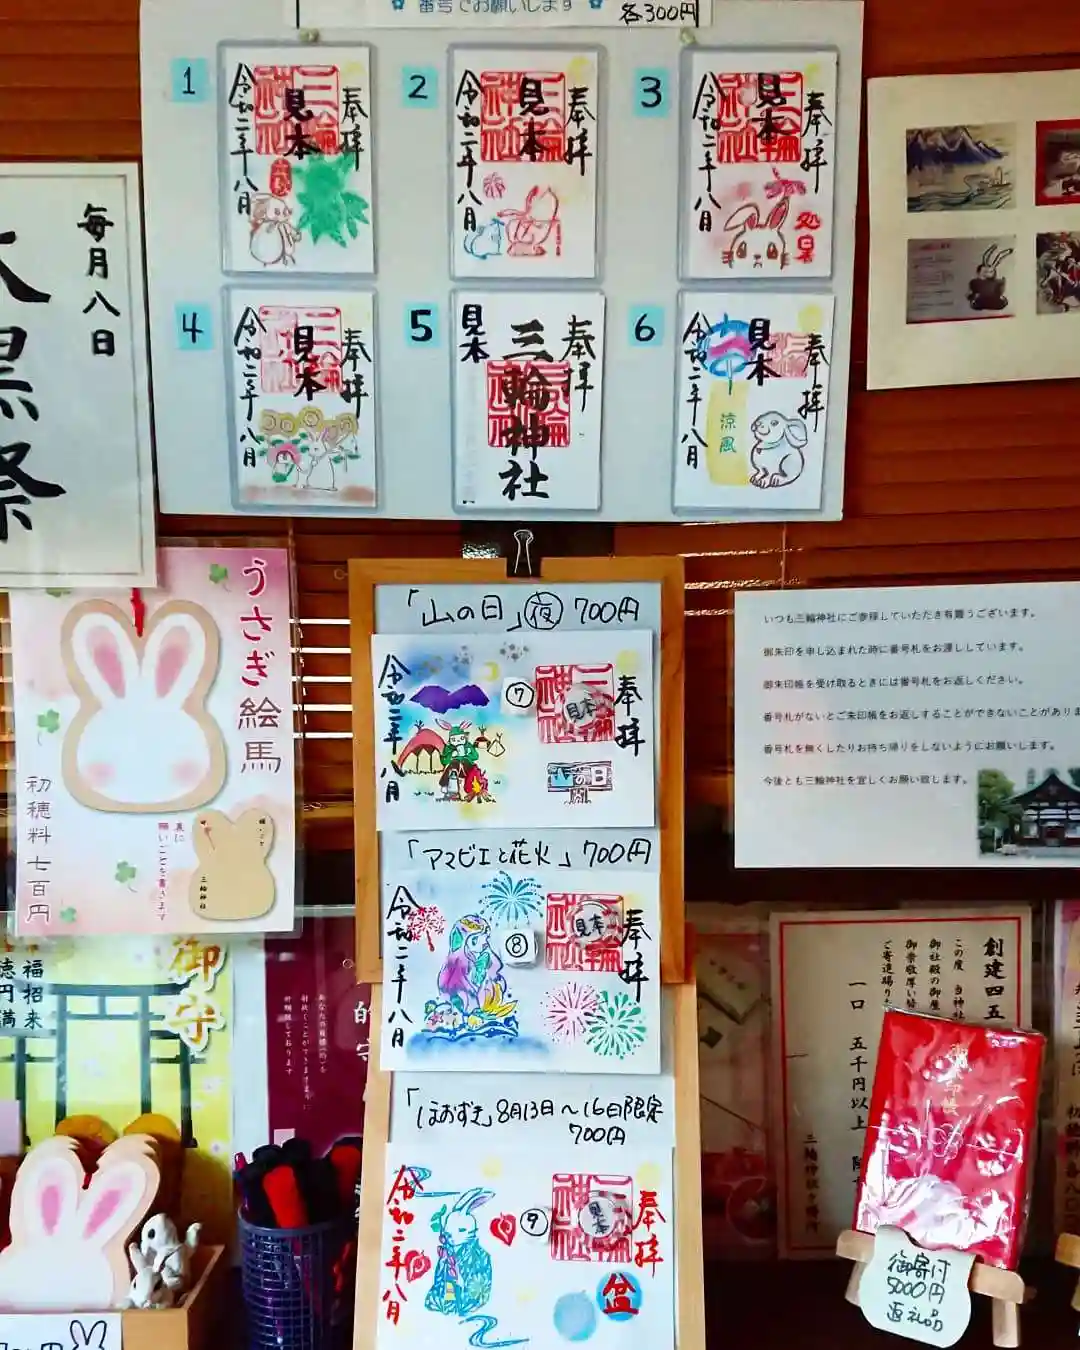 番号でお願いします
各300円
1
奉拝
三輪神社
見本
令和二年八月
2
奉拝
三輪神社
見本
令和二年八月
3
奉拝
三輪神社
見本
処暑
令和二年八月
4
奉拝
三輪神社
見本
令和二年八月
5
奉拝
三輪神社
見本
6
奉拝
見本
涼風
令和二年八月
毎月八日
大黒祭
うさぎ絵馬
初穂料七百円
裏に
願いごとを書きます
三輪神社
「山の日」夜 700円
奉拝
三輪神社
見本
⑦
山の日
令和二年八月
「アマビエと花火」700円
奉拝
三輪神社
見本
⑧
令和二年八月
「ほおずき」8月13日〜16日限定
700円
奉拝
三輪神社
見本
⑨
盆
令和二年八月
いつも三輪神社にご参拝していただき有難うございます。
御朱印を申し込まれた時に番号札をお渡ししています。
御朱印帳を受け取るときには番号札をお返しください。
番号札がないとご朱印帳をお返しすることができないことがありま
番号札を無くしたりお持ち帰りをしないようにお願いします。
今後とも三輪神社を宜しくお願い致します。
御守
福招来
徳円満
的
創建四五
この度 当神社
御社殿の御屋
御崇敬厚い皆
ご寄進賜りた
一口 五千円以上
御寄付
5000円
返礼品